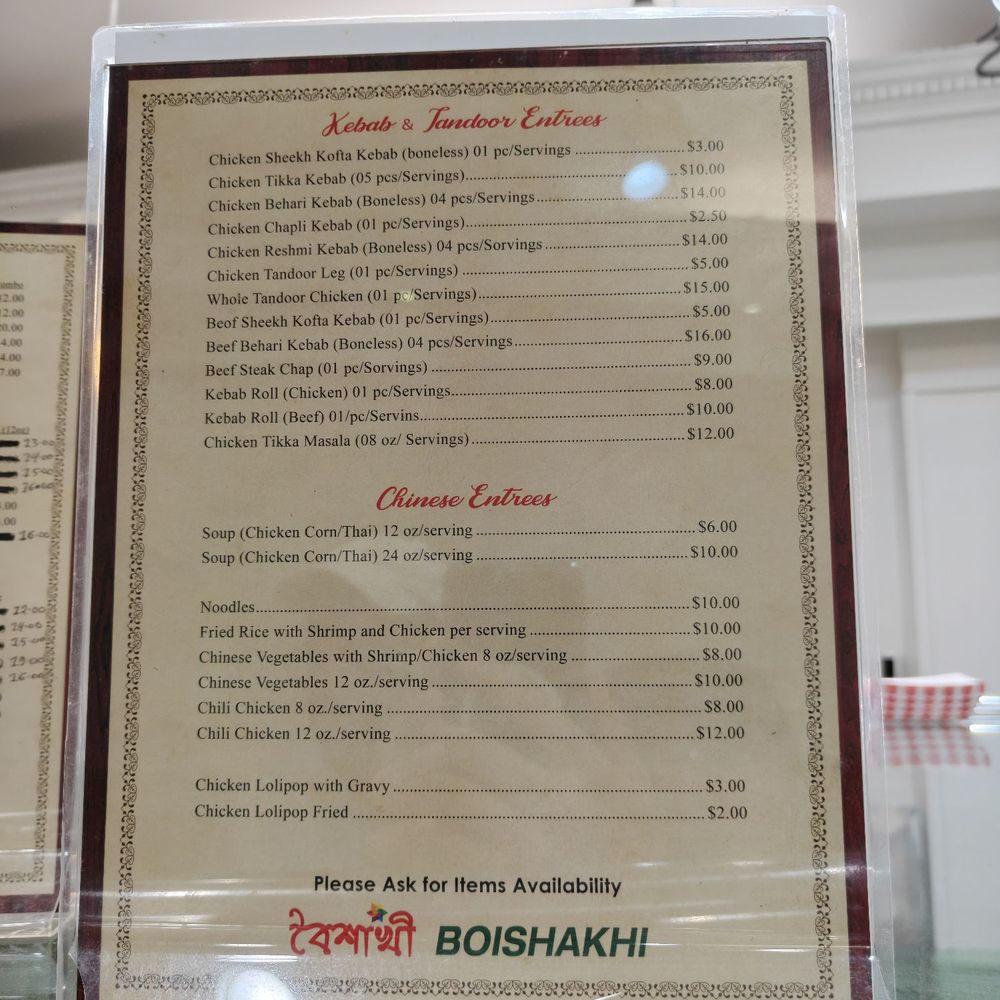 Kebab & Tandoor Entrees
Chicken Sheekh Kofta Kebab (boneless) 01 pc/Servings ........ $3.00
Chicken Tikka Kebab (05 pcs/Servings) ........ $10.00
Chicken Behari Kebab (Boneless) 04 pcs/Servings ........ $14.00
Chicken Chapli Kebab (01 pc/Servings) ........ $2.50
Chicken Reshmi Kebab (Boneless) 04 pcs/Sorvings ........ $14.00
Chicken Tandoor Leg (01 pc/Servings) ........ $5.00
Whole Tandoor Chicken (01 pc/Servings) ........ $15.00
Beof Sheekh Kofta Kebab (01 pc/Servings) ........ $5.00
Beef Behari Kebab (Boneless) 04 pcs/Servings ........ $16.00
Beef Steak Chap (01 pc/Sorvings) ........ $9.00
Kebab Roll (Chicken) 01 pc/Servings ........ $8.00
Kebab Roll (Beef) 01/pc/Servins ........ $10.00
Chicken Tikka Masala (08 oz/ Servings) ........ $12.00
Chinese Entrees
Soup (Chicken Corn/Thai) 12 oz/serving ........ $6.00
Soup (Chicken Corn/Thai) 24 oz/serving ........ $10.00
Noodles ........ $10.00
Fried Rice with Shrimp and Chicken per serving ........ $10.00
Chinese Vegetables with Shrimp/Chicken 8 oz/serving ........ $8.00
Chinese Vegetables 12 oz./serving ........ $10.00
Chili Chicken 8 oz./serving ........ $8.00
Chili Chicken 12 oz./serving ........ $12.00
Chicken Lolipop with Gravy ........ $3.00
Chicken Lolipop Fried ........ $2.00
Please Ask for Items Availability
বৈশাখী BOISHAKHI